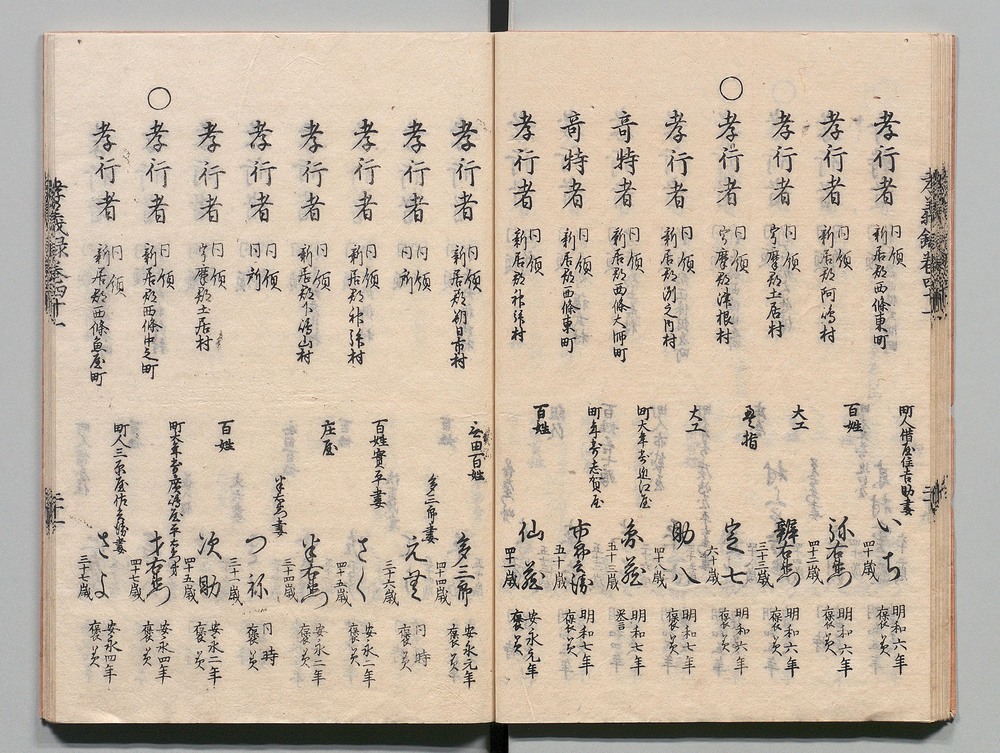 孝義録巻四十一
孝行者 同領 新居郡西條東町 町人借屋住吉助妻 いち 四十歳 明和六年 褒美
孝行者 同領 新居郡阿嶋村 百姓 弥右衛門 四十二歳 明和六年 褒美
孝行者 同領 宇摩郡土居村 大工 辨右衛門 三十三歳 明和六年 褒美
〇孝行者 同領 宇摩郡津根村 定七 六十歳 明和六年 褒美
孝行者 同領 新居郡洲之内村 大工 助八 四十八歳 明和七年 褒美
奇特者 同領 新居郡西條大師町 町大年寄近江屋 五十三歳 明和七年
奇特者 同領 新居郡西條東町 町年寄志賀屋 市郎兵衛 五十歳 明和七年 褒美
孝行者 同領 新居郡 百姓 仙蔵 四十一歳 安永元年 褒美
孝行者 同領 新居郡朔日市村 無田百姓 多三郎 四十四歳 安永元年 褒美
孝行者 同領 同所 多三郎妻 三十六歳 同時 褒美
孝行者 同領 新居郡 百姓實平妻 さく 四十五歳 安永二年 褒美
孝行者 同領 新居郡下嶋山村 庄屋 半右衛門 三十四歳 安永二年 褒美
孝行者 同領 同所 半右衛門妻 つね 三十一歳 同時 褒美
孝行者 同領 宇摩郡土居村 百姓 次助 四十五歳 安永二年 褒美
〇孝行者 同領 新居郡西條中之町 四十七歳 安永四年 褒美
孝行者 同領 新居郡西條魚屋町 さよ 三十七歳 安永四年 褒美
孝義録巻四十一